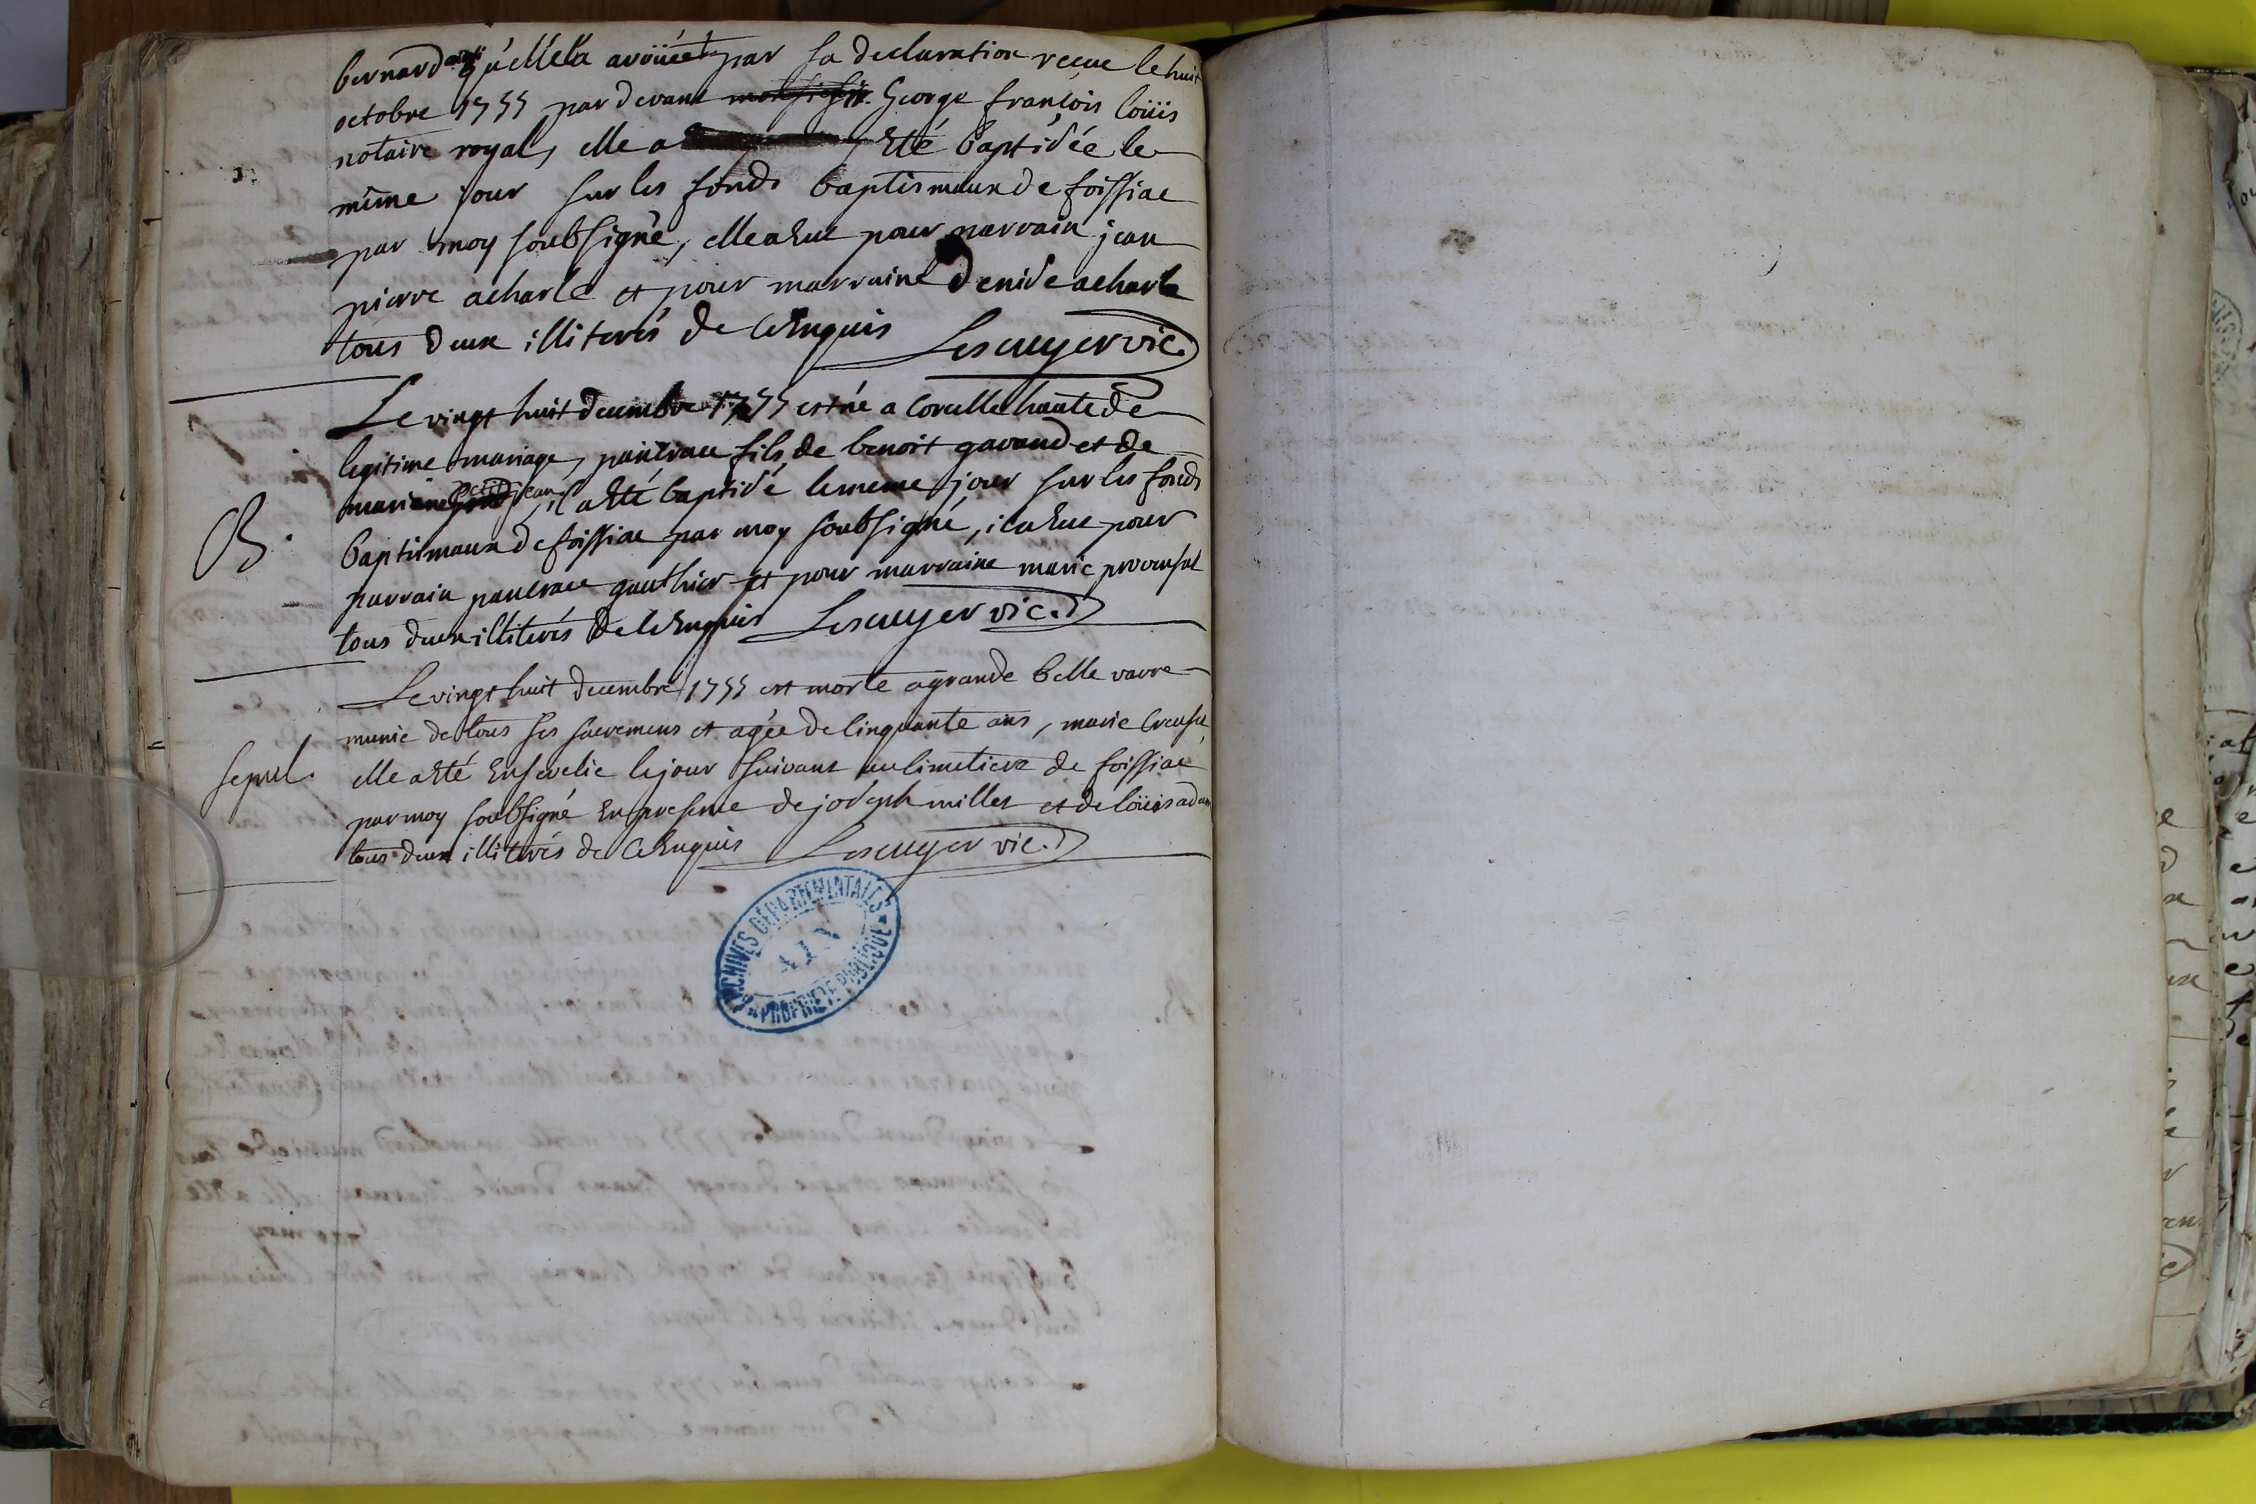 bernard ainsi qu'elle l'a avoüée par sa declaration reçue le huit
octobre 1755 par devant George françois loüis
notaire royal, elle a Eté baptisée le
même jour sur les fonds baptismaux de foissiac
par moy soubsigné, elle a Eue pour parrain jean
pierre acharle et pour marraine denise acharle
tous deux illiterés de ce Enquis Lescuyer vic.
Le vingt huit decembre 1755 est né a Corcelle haute de
legitime mariage, pancrace fils de benoit gavand et de
mariene petit jean, il a Eté baptisé le meme jour sur les fonds
B.
baptismaux de foissiac par moy soubsigné, il a Eue pour
parrain pancrace gauthier et pour marraine marie provensal
tous deux illiterés de ce Enquis Lescuyer vic.
Le vingt huit decembre 1755 est morte a grande belle vavre
munie de tous ses sacremens et agée de cinquante ans, marie Creuse,
sepul.
elle a Eté Ensevelie le jour suivant au cimetiere de foissiac
par moy soubsigné En presence de joseph millet et de loüis adam
tous deux illiterés de ce Enquis Lescuyer vic.
ARCHIVES DÉPARTEMENTALES
AIN
PROPRIÉTÉ PUBLIQUE